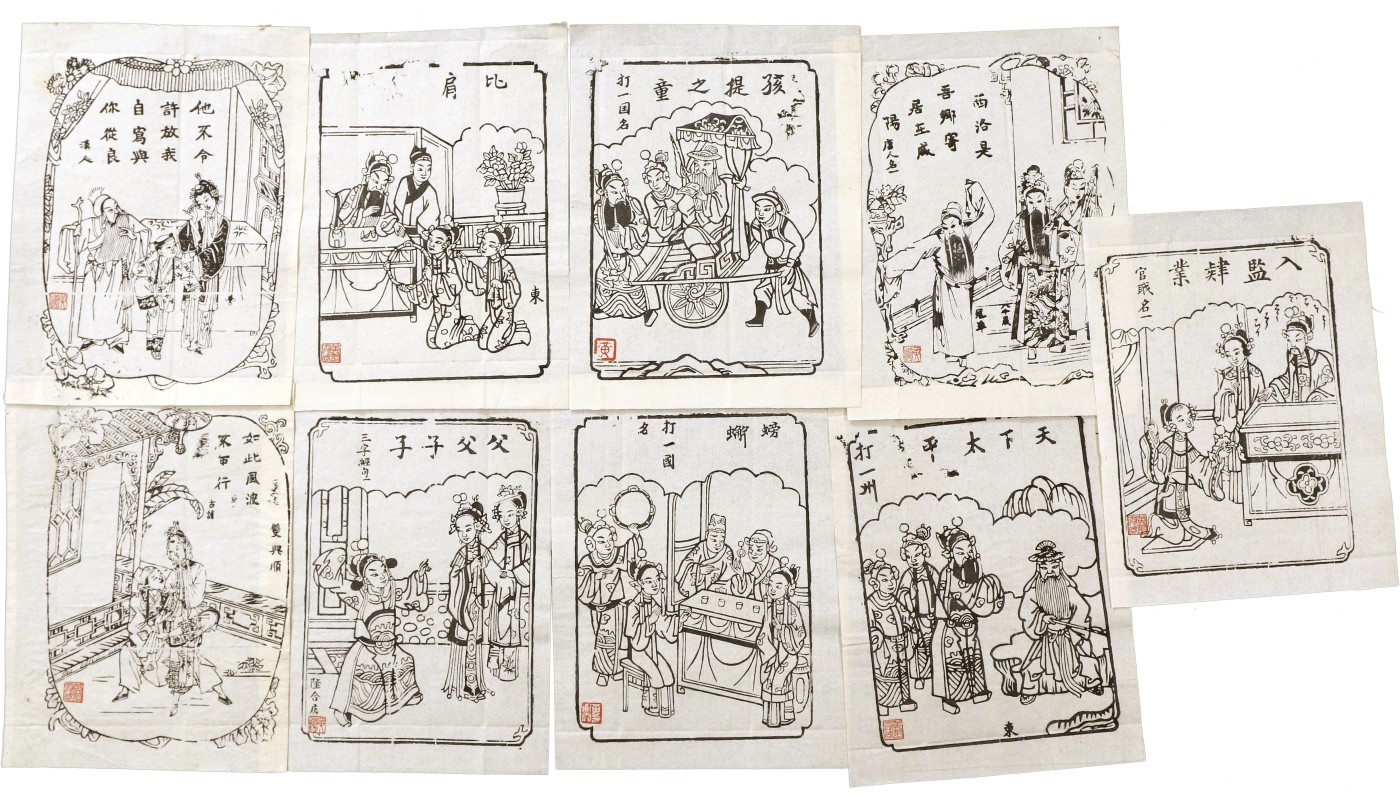 他不令
許放我
自寫與
你從良
比肩
東
孩提之童
打一国名
西洛是
吾鄉寄
居在咸
陽
唐人名一
入監肄業
官职名一
如此風波
不可行
雙興順
父父子子
三字經句一
隆合店
螃蠏
打一國
名
天下太平
打一州
東